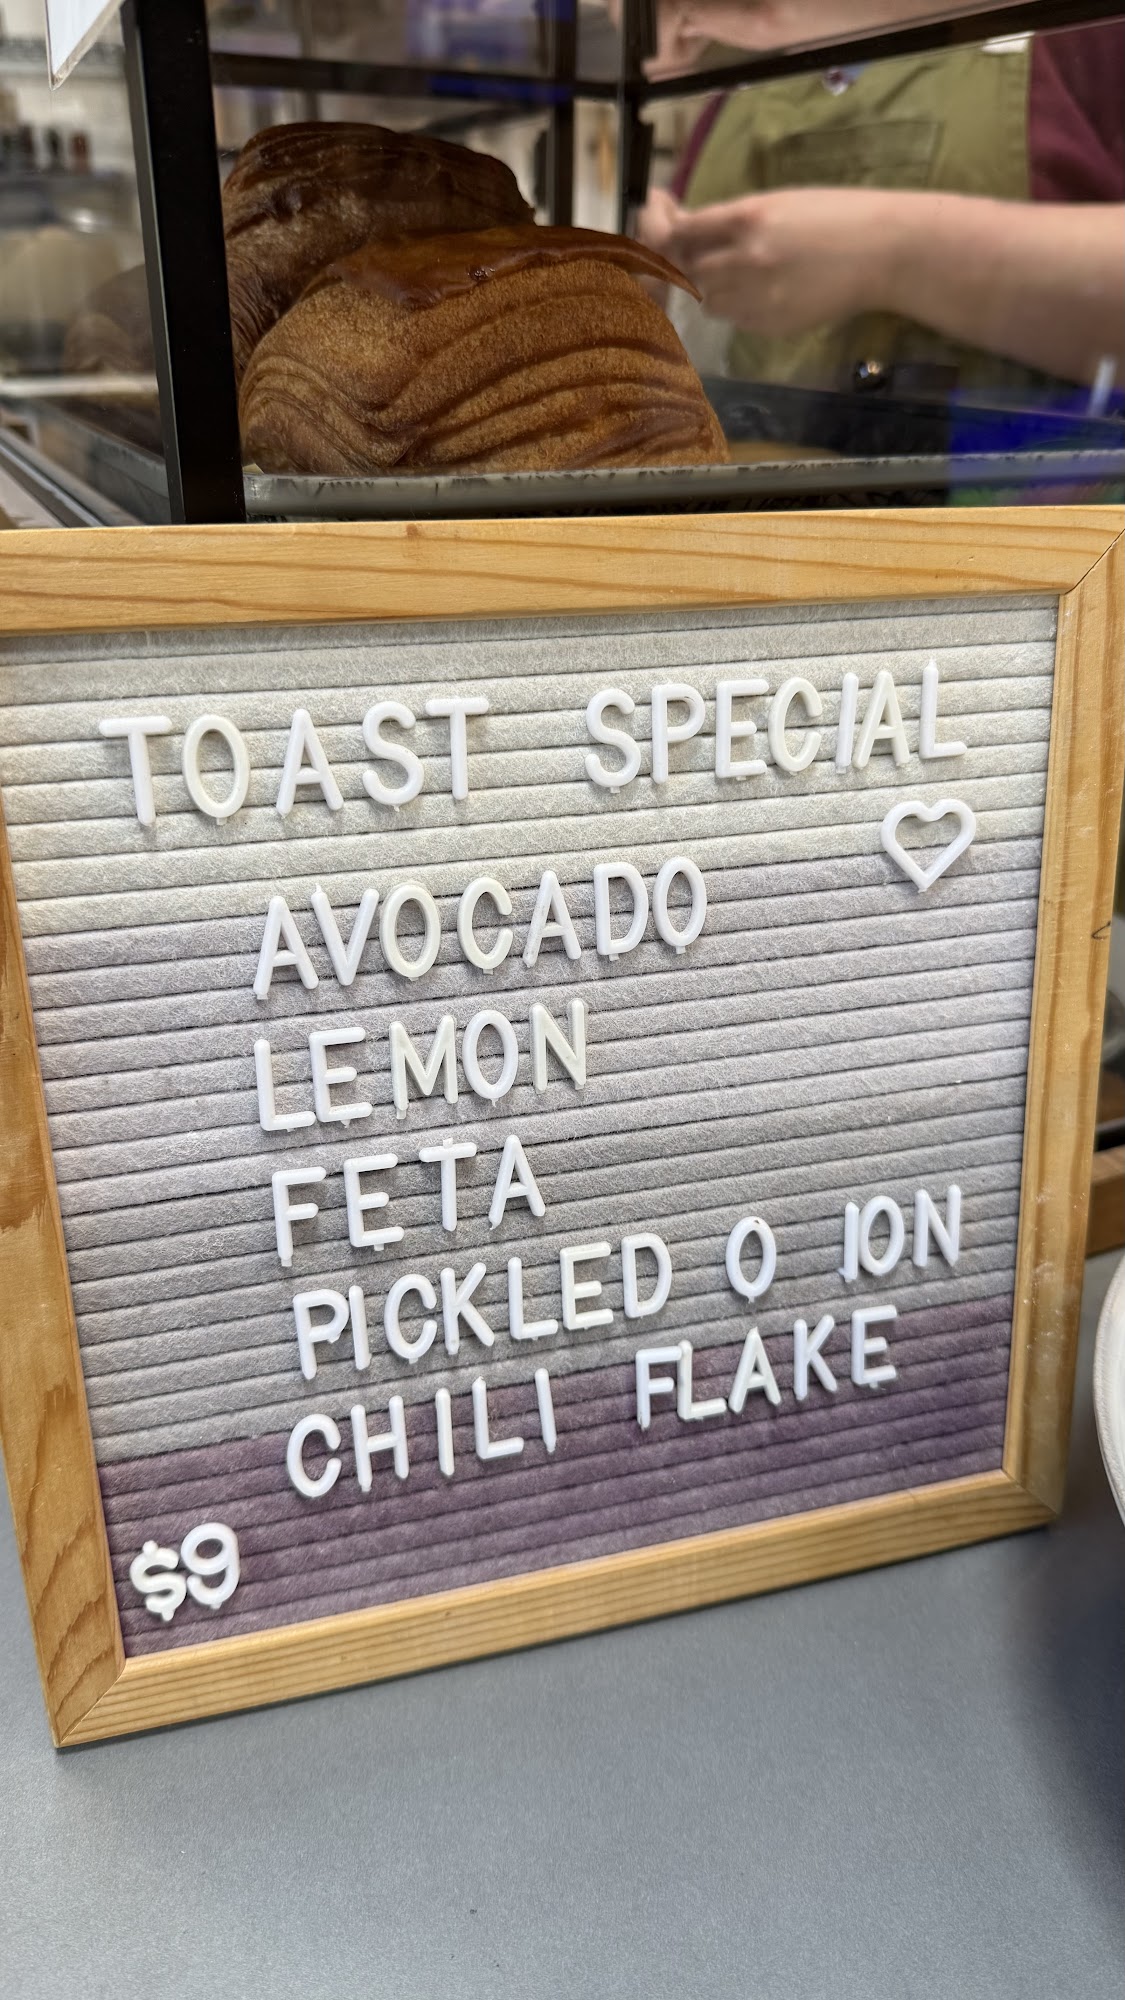 TOAST SPECIAL
♡
AVOCADO
LEMON
FETA
PICKLED O ION
CHILI FLAKE
$9